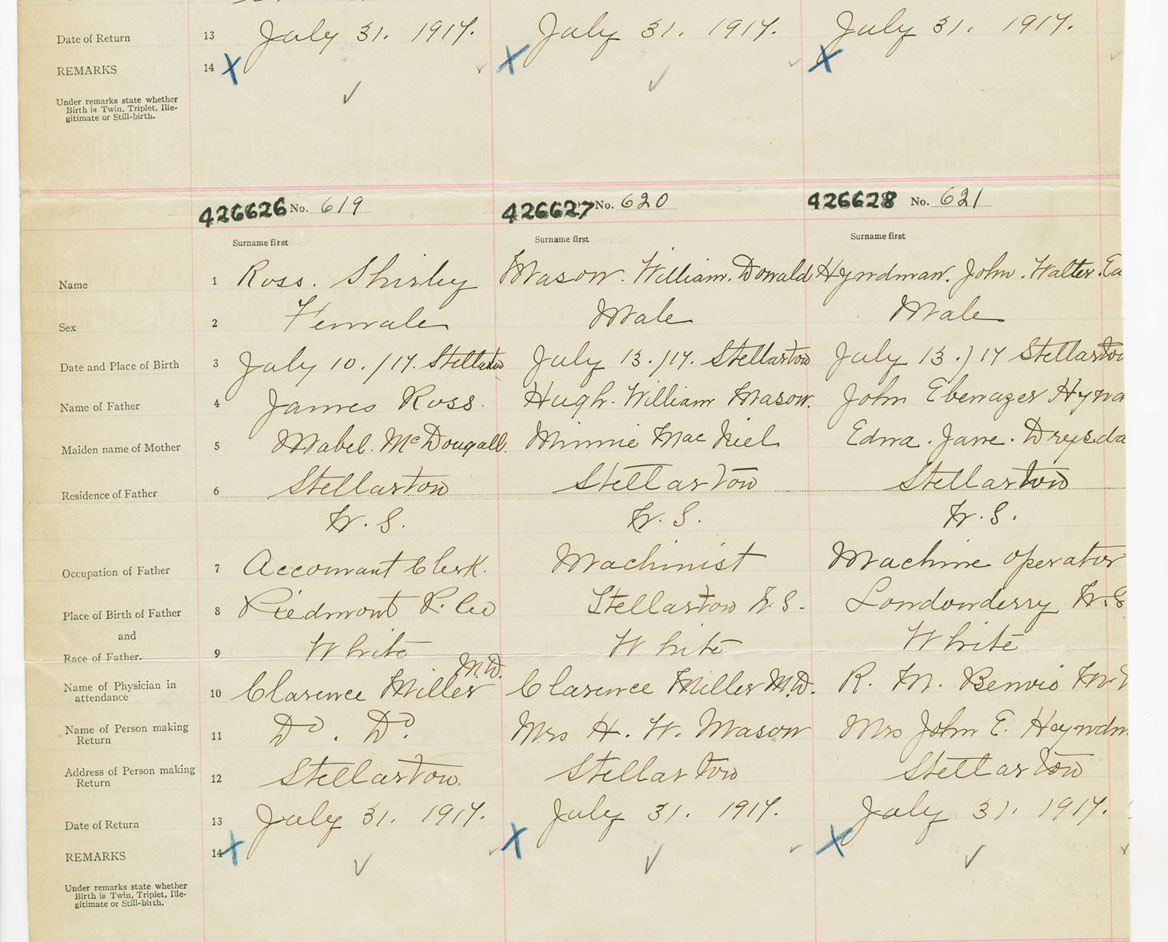 Date of Return 13 July 31. 1917. July 31. 1917. July 31. 1917.
REMARKS 14 X X X
Under remarks state whether
Birth is Twin, Triplet, Ille-
gitimate or Still-birth.
426626 No. 619 426627 No. 620 426628 No. 621
Surname first Surname first Surname first
Name 1 Ross. Shirley Mason. William. Donald Hyndman. John. Walter.
Sex 2 Female Male Male
Date and Place of Birth 3 July 10./17. Stellarton July 13./17. Stellarton July 13./17 Stellarton
Name of Father 4 James Ross. Hugh. William Mason. John Ebenazer Hynd
Maiden name of Mother 5 Mabel. McDougall. Minnie MacNiel Edna. Jane. Drysda
Residence of Father 6 Stellarton Stellarton Stellarton
N.S. N.S. N.S.
Occupation of Father 7 Accountant Clerk. Machinist Machine operator
Place of Birth of Father 8 Piedmont P. Co Stellarton N.S. Londonderry N.S
and
Race of Father. 9 White White White
Name of Physician in
attendance 10 Clarence Miller M.D. Clarence Miller M.D. R. M. Benvie M.D
Name of Person making
Return 11 Do. Do. Mrs H. W. Mason Mrs John E. Hayndm
Address of Person making
Return 12 Stellarton. Stellarton Stellarton
Date of Return 13 July 31. 1917. July 31. 1917. July 31. 1917.
REMARKS 14 X X X
Under remarks state whether
Birth is Twin, Triplet, Ille-
gitimate or Still-birth.